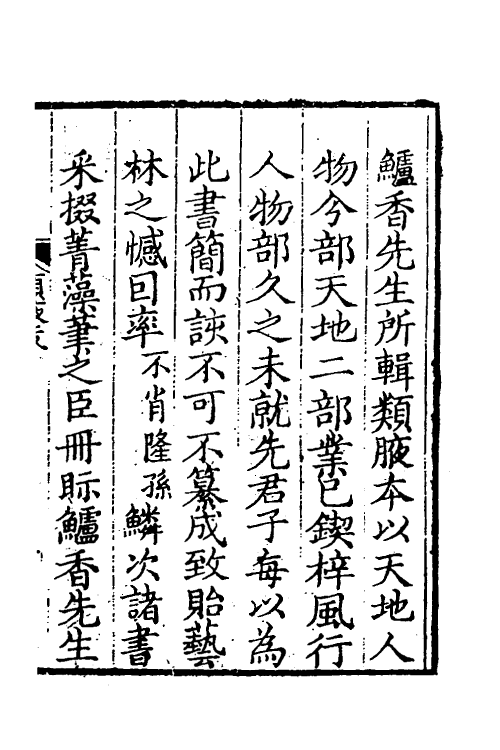 鱸香先生所輯類腋本以天地人
物分部天地二部業已鍥梓風行
人物部久之未就先君子每以為
此書簡而該不可不纂成致貽藝
林之憾回率不肖隆孫鱗次諸書
采掇菁藻筆之巨冊眎鱸香先生